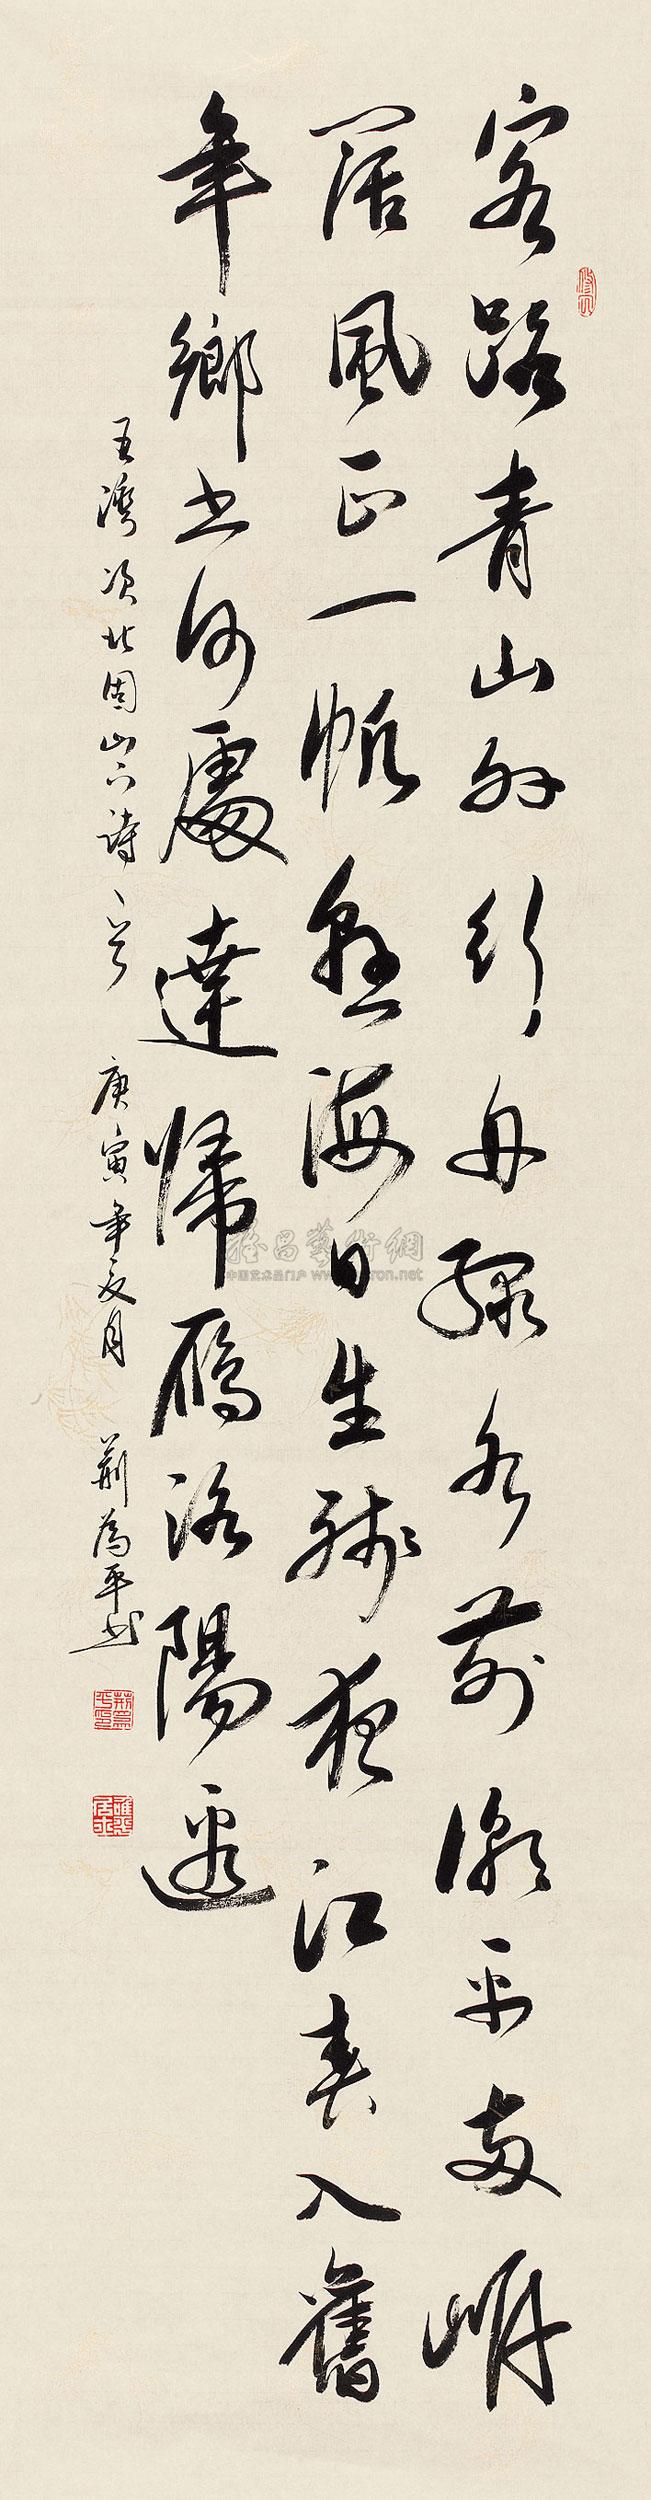 客路青山外行舟綠水前潮平兩岸
闊風正一帆懸海日生殘夜江春入舊
年鄉書何處達歸雁洛陽邊
王灣次北固山下詩一首 庚寅年夏月 荊為平書
中国艺术品门户 www.